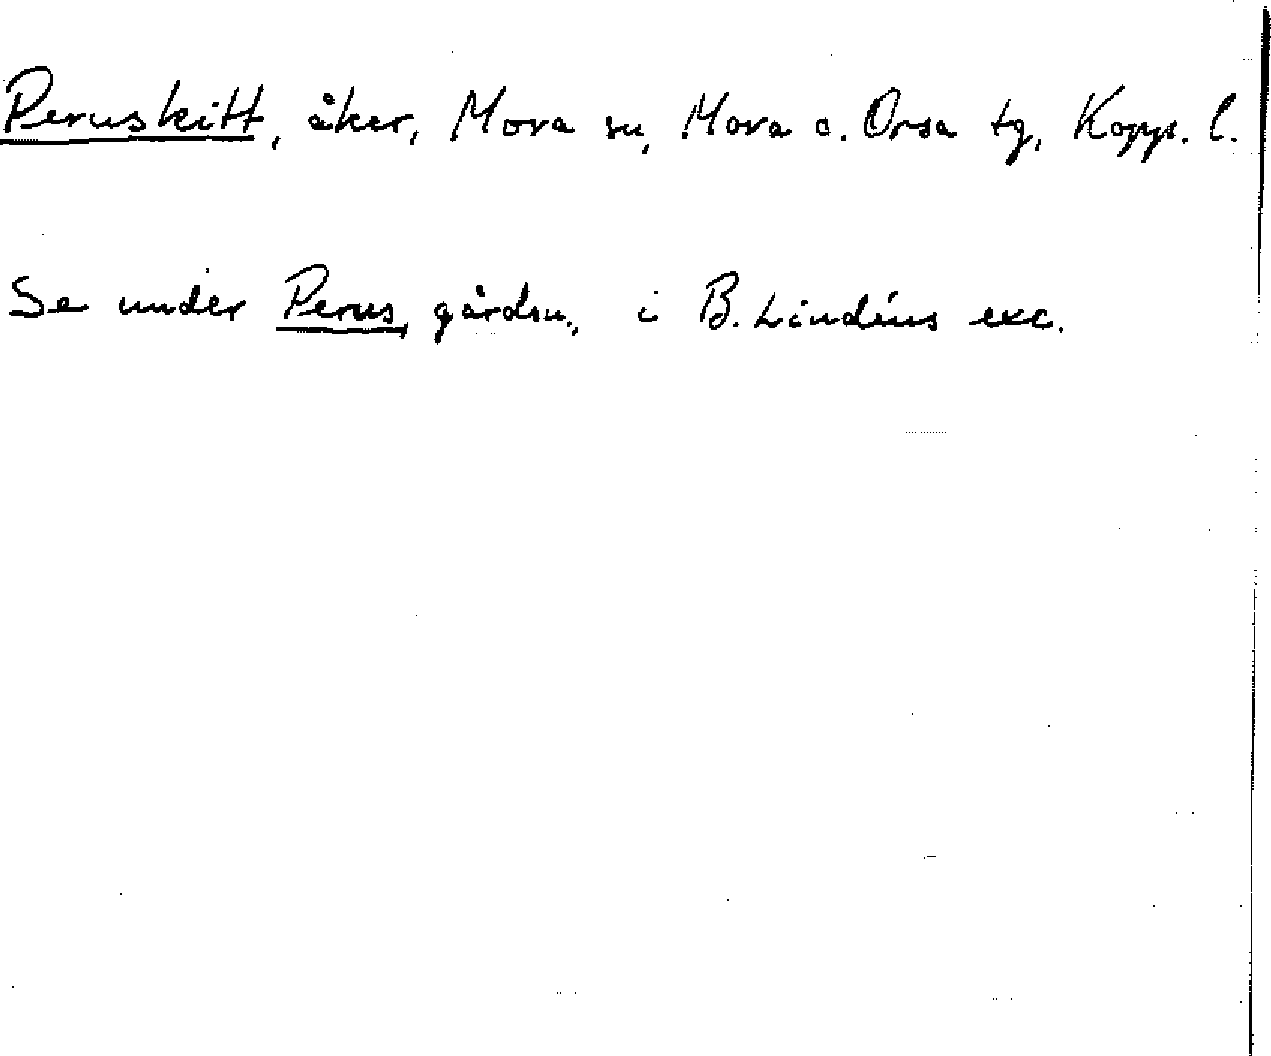 Peruskitt, åker, Mora sn, Mora o. Orsa tg, Kopp. l.
Se under Perus, gårdsn., i B. Lindéns exc.